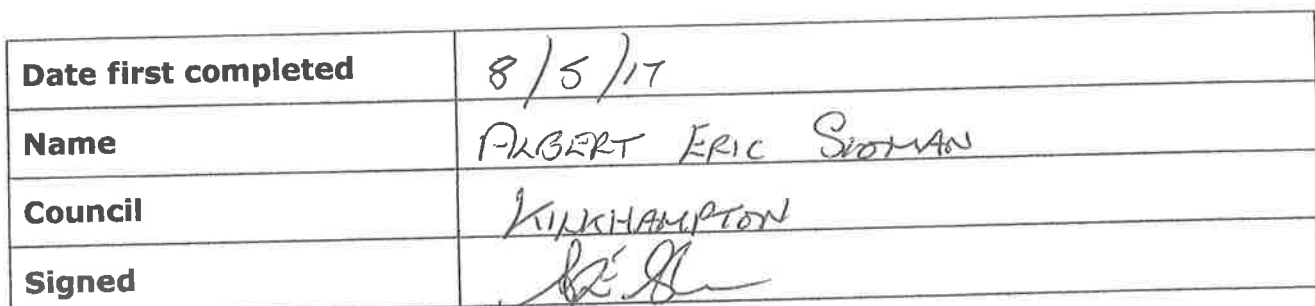 Date first completed 8/5/17
Name ALBERT ERIC SLOMAN
Council KILKHAMPTON
Signed